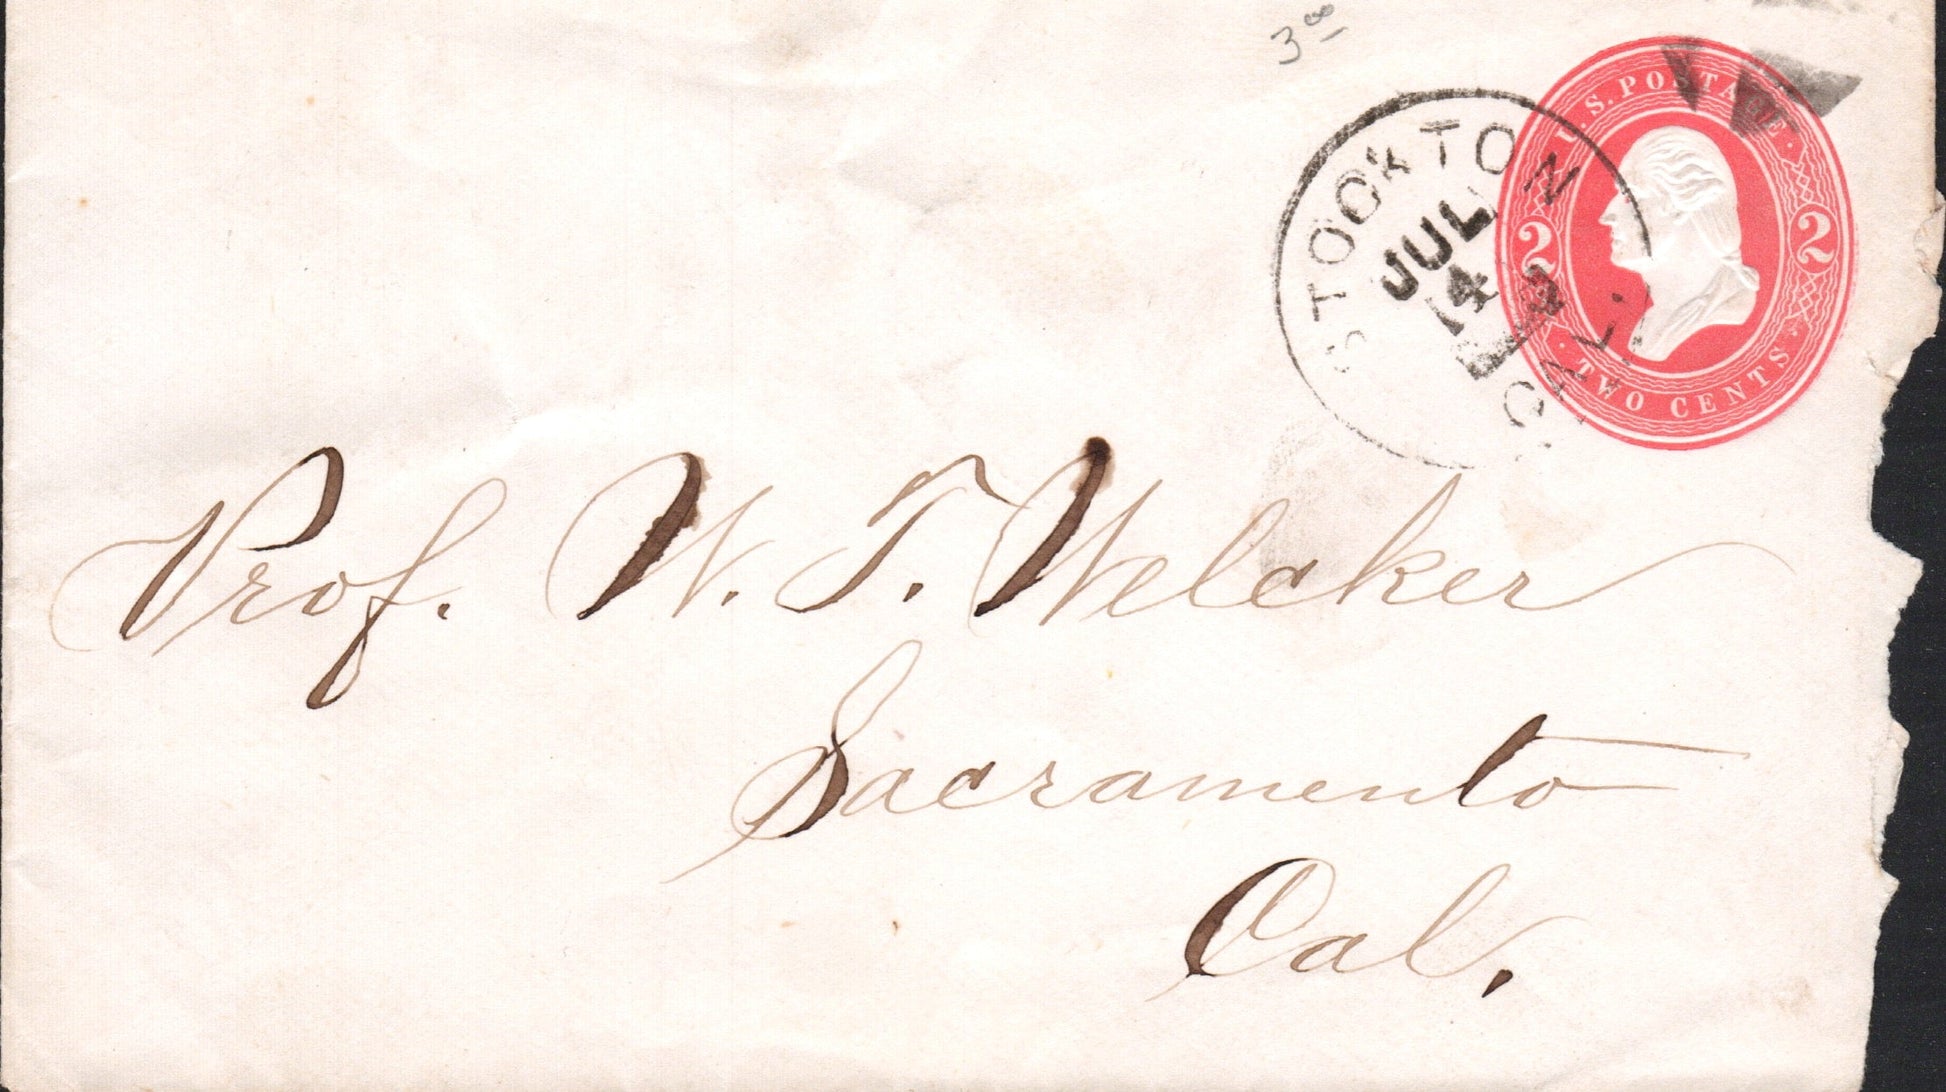 3 00
U.S. POSTAGE
2 2
TWO CENTS
STOCKTON
JUL
14
CAL.
Prof. W. T. Welcker
Sacramento
Cal.